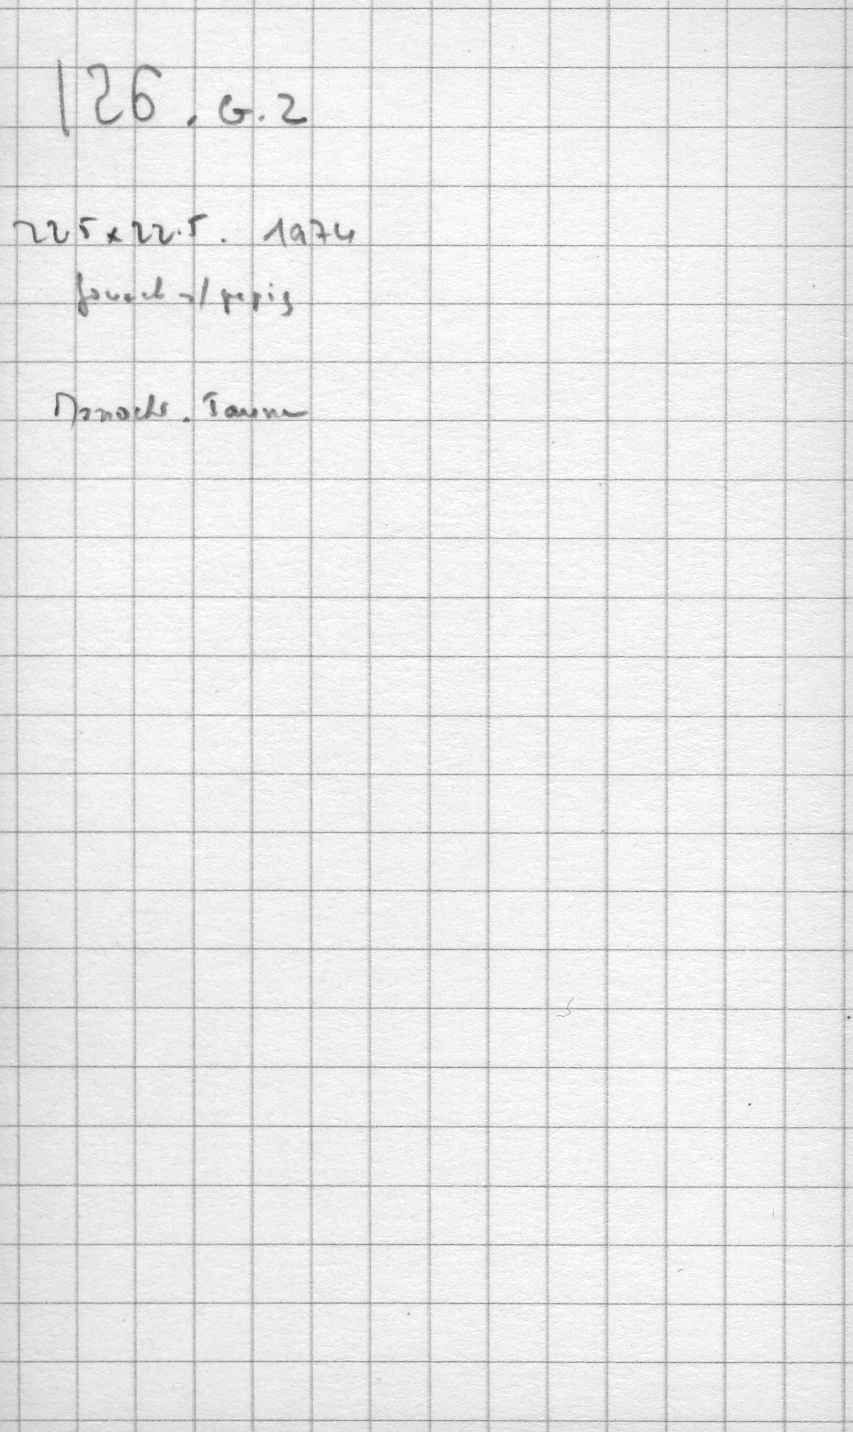 126. G.2
22 5 x 22.5. 1974
gouach s/ papier
Monochr.